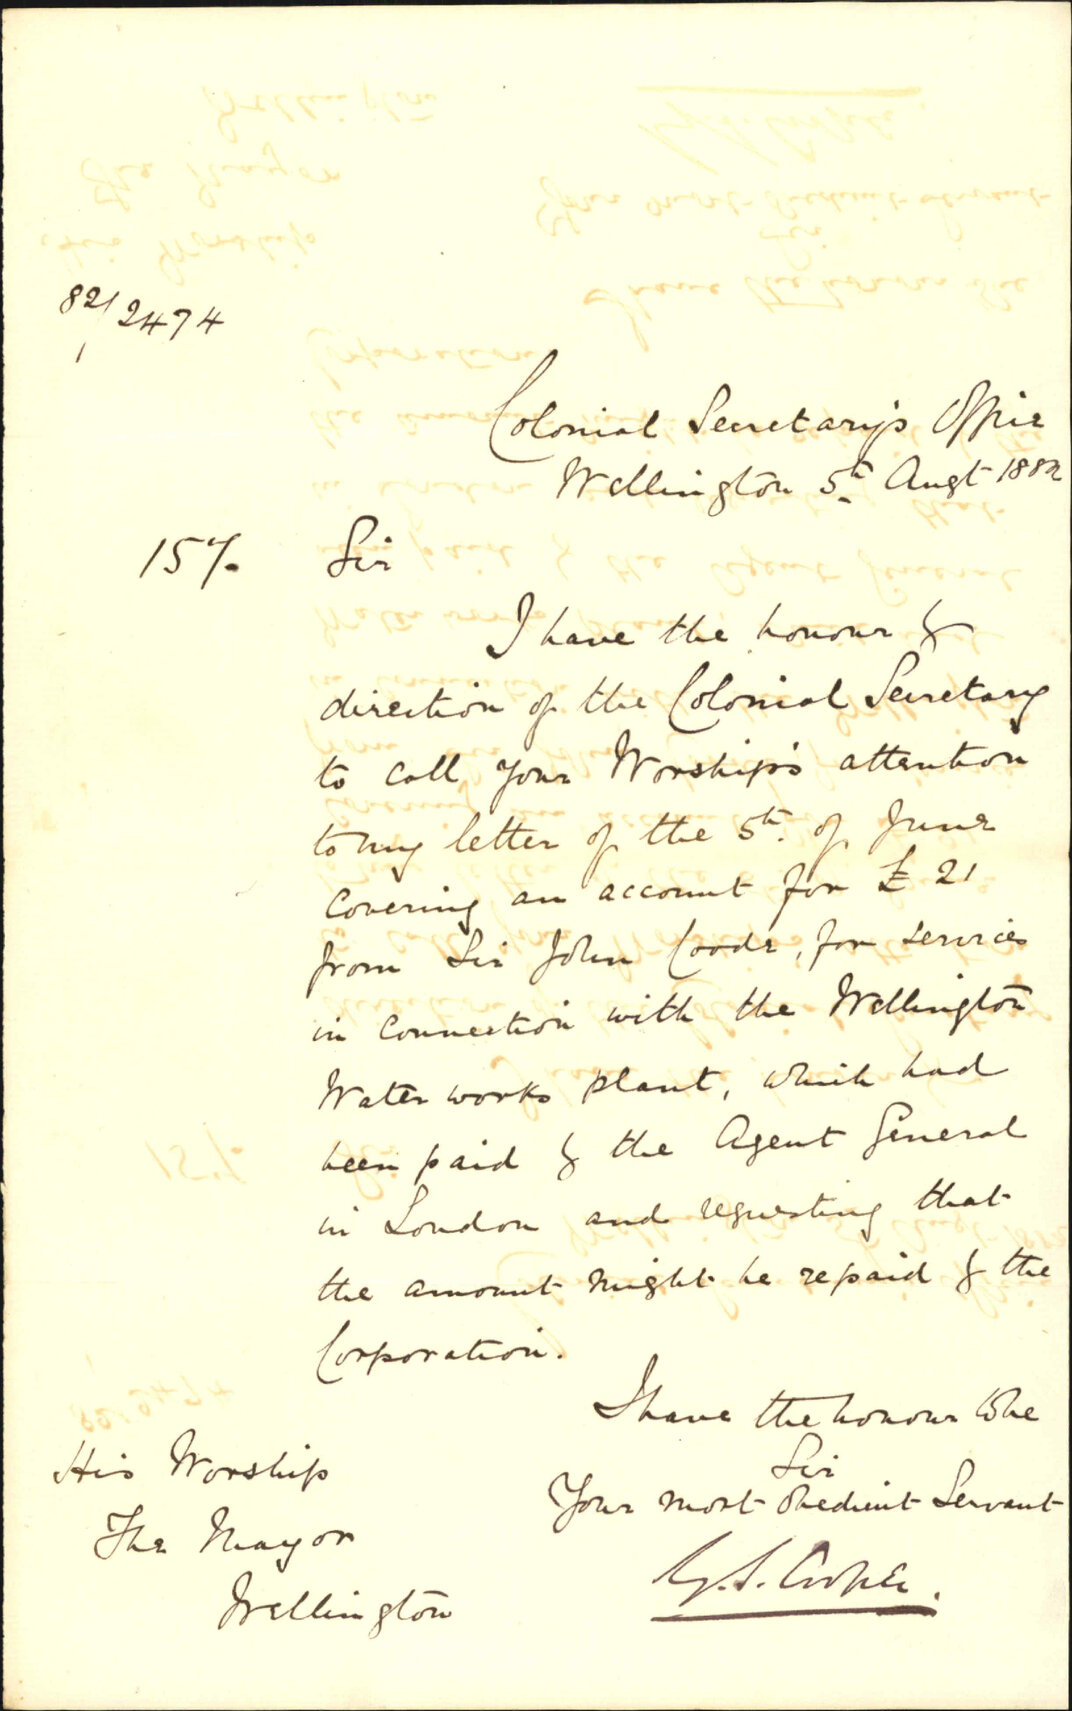 82/2474
1
Colonial Secretary's Office
Wellington 5th Augt 1882
157.
Sir
I have the honour by
direction of the Colonial Secretary
to call Your Worship's attention
to my letter of the 5th. of June
covering an account for £21
from Sir John Coode, for services
in connection with the Wellington
Water works plant, which had
been paid by the Agent General
in London and requesting that
the amount might be repaid by the
Corporation.
I have the honour to be
Sir
Your most obedient Servant
G. S. Cooper.
His Worship
The Mayor
Wellington